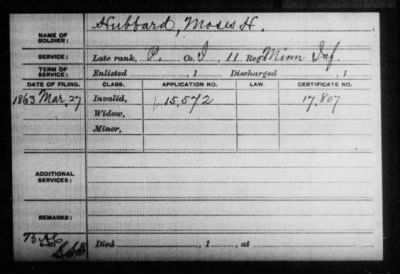 NAME OF SOLDIER: Hubbard, Moses H.
SERVICE: Late rank, P. Co. I, 11 Reg't Minn Inf.
TERM OF SERVICE: Enlisted , 1 Discharged , 1
DATE OF FILING. CLASS. APPLICATION NO. LAW. CERTIFICATE NO.
1863 Mar, 27 Invalid, 15,572 17,807
Widow,
Minor,
ADDITIONAL SERVICES:
REMARKS:
Died , 1 , at